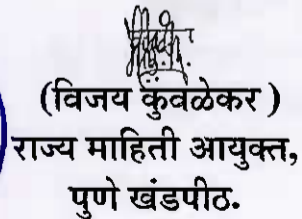 (विजय कुंवळेकर)
राज्य माहिती आयुक्त,
पुणे खंडपीठ.